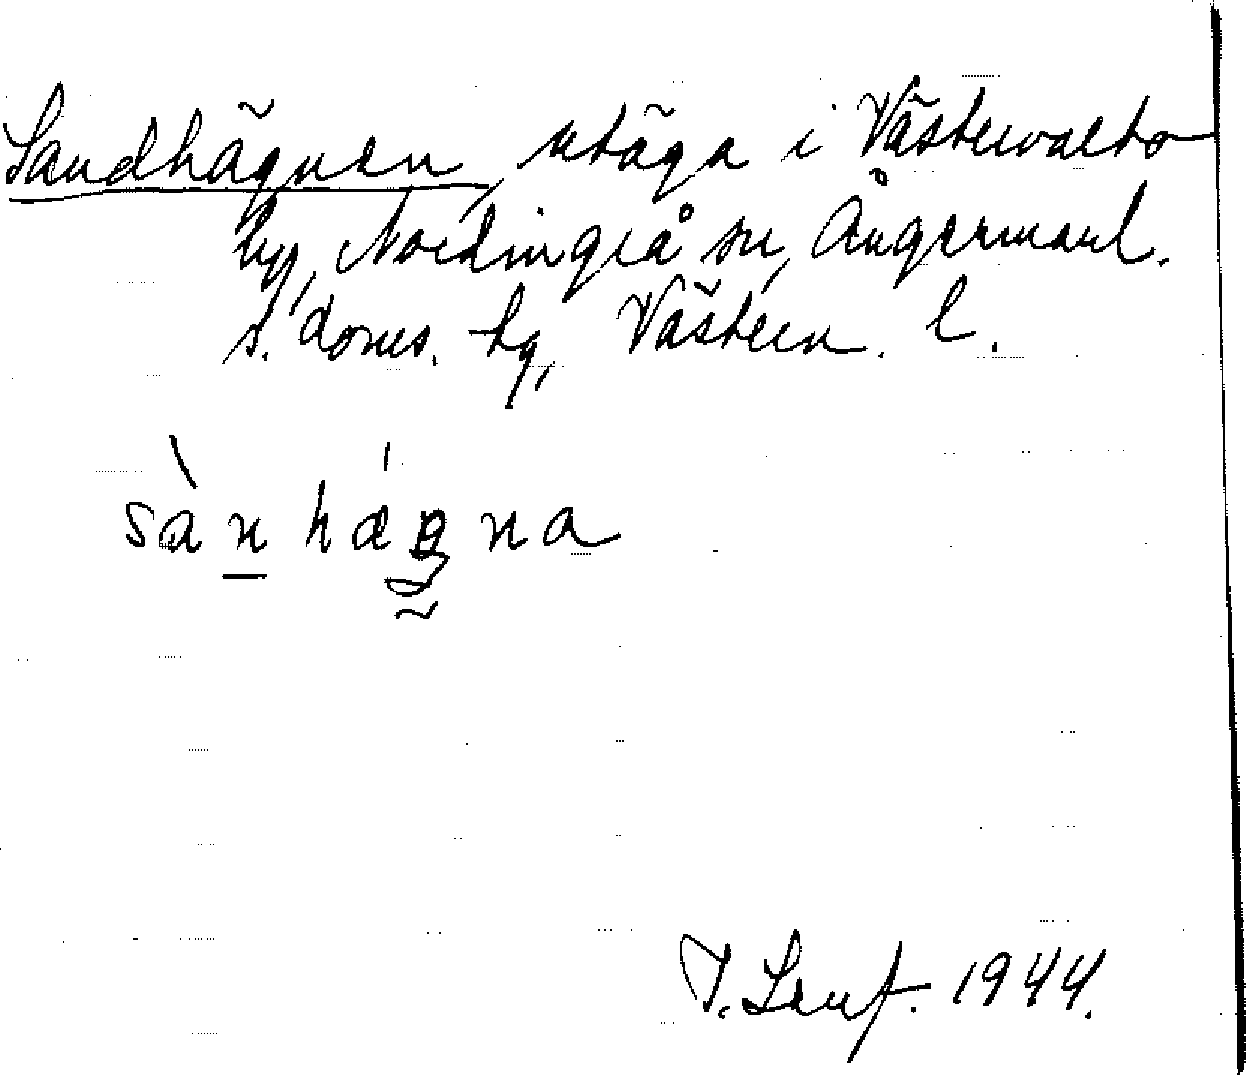 Sandhägnen, utäga i Västervalto
by, Nordingrå sn, Ångermanl.
s. doms. hg, Västern. l.
sànhæ̀gna
1944.